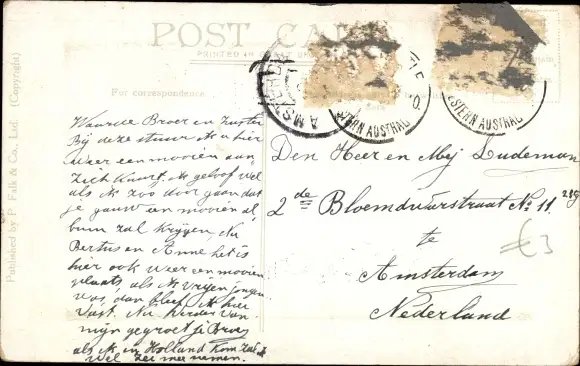 POST CARD
PRINTED IN GREAT
For correspondence
Published by P. Falk & Co., Ltd. (Copyright)
AMSTERD
STERN AUSTRAL
ESTERN AUSTRAL
Waarde Broer en Zuster
Bij deze stuur ik u hier
weer een mooien aan
zich kaart. Ik geloof wel
als ik zoo door gaan dat
je gauw een mooien al
bum zal krijgen, Nu
Bertus en Anne het is
hier ook weer een mooien
plaats als ik vrijen jongen
was, dan bleef ik hier
vast. Nu verder van
mijn gegroet je Broer
als ik in Holland kom zal ik
Wel zee mee nemen.
Den Heer en Mej Ludeman
2de Bloemdwarstraat No 11
te
Amsterdam
Nederland
€3